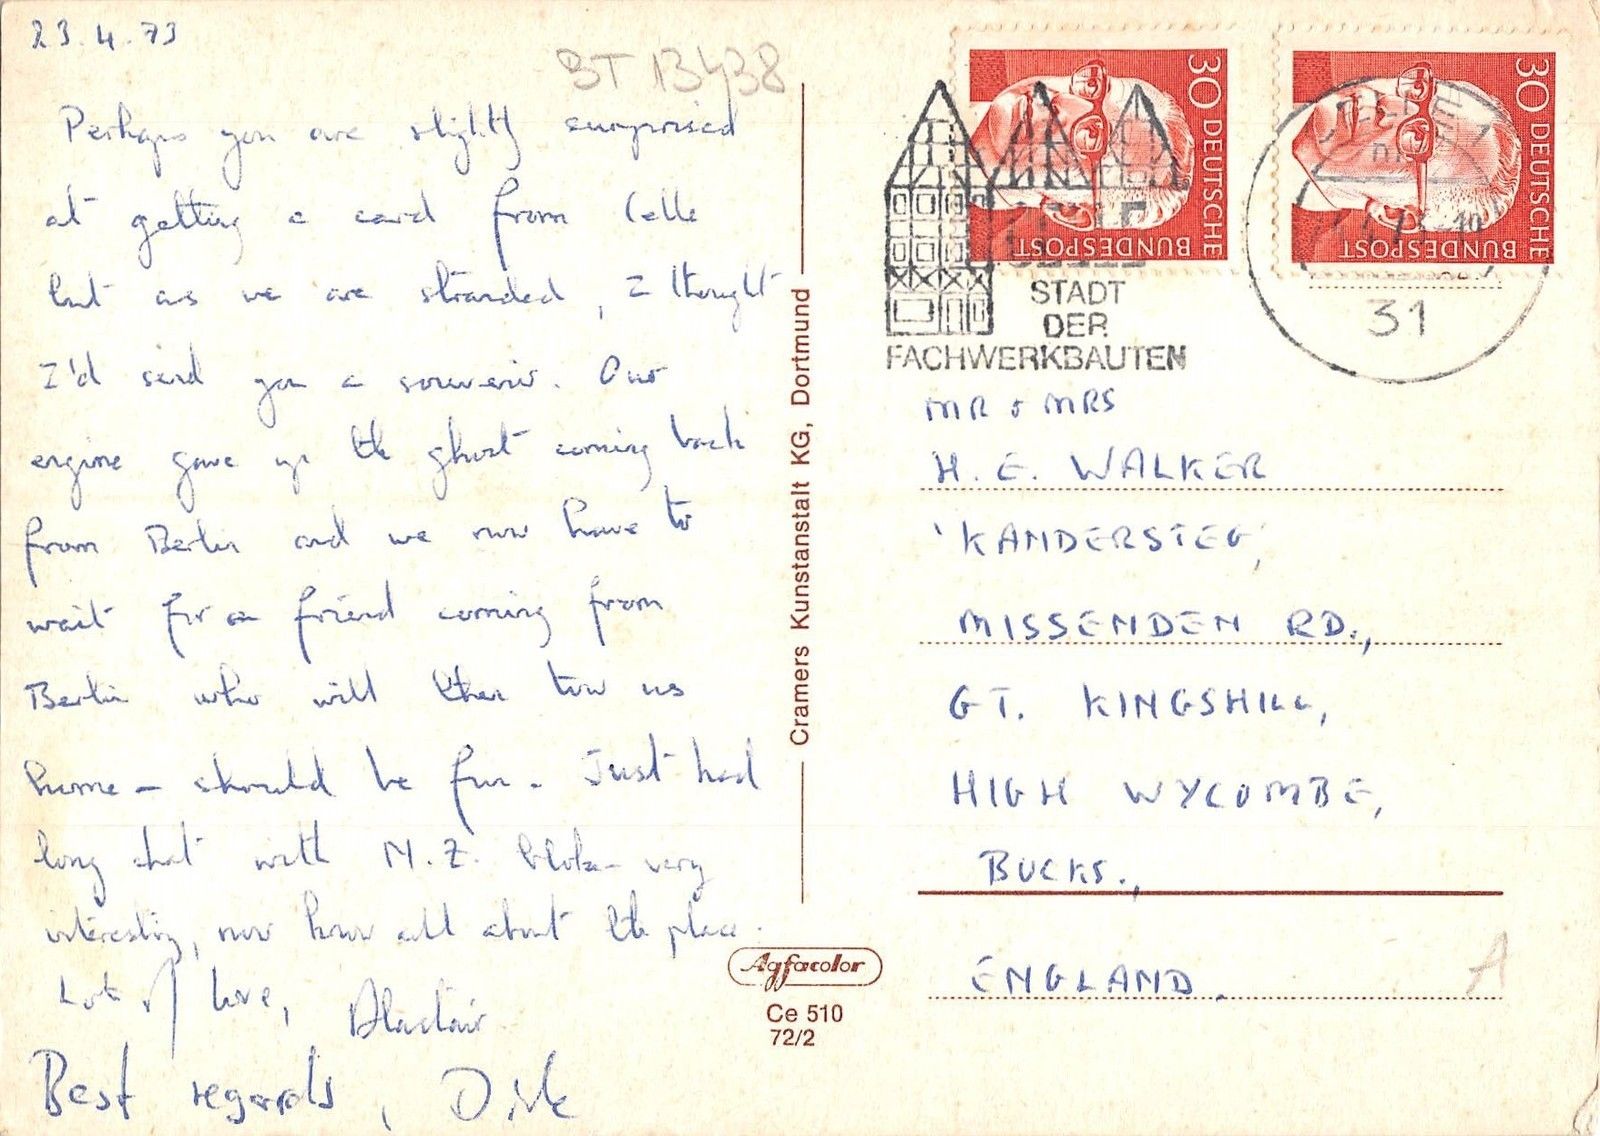 23.4.73
BT 13438
Perhaps you are slightly surprised
at getting a card from Celle
but as we are stranded, I thought
I'd send you a souvenir. Our
engine gave up the ghost coming back
from Berlin and we now have to
wait for a friend coming from
Berlin who will then tow us
home – should be fun. Just had
long chat with N.Z. bloke – very
interesting, now know all about the place.
Lots of love, Alastair
Best regards, Dirk
Cramers Kunstanstalt KG, Dortmund
Agfacolor
Ce 510
72/2
30 DEUTSCHE
BUNDESPOST
30 DEUTSCHE
BUNDESPOST
CELLE
STADT
DER
FACHWERKBAUTEN
CELLE 1
31
MR & MRS
H. E. WALKER
'KANDERSTEG,'
MISSENDEN RD.,
GT. KINGSHILL,
HIGH WYCOMBE,
BUCKS.,
ENGLAND.
A